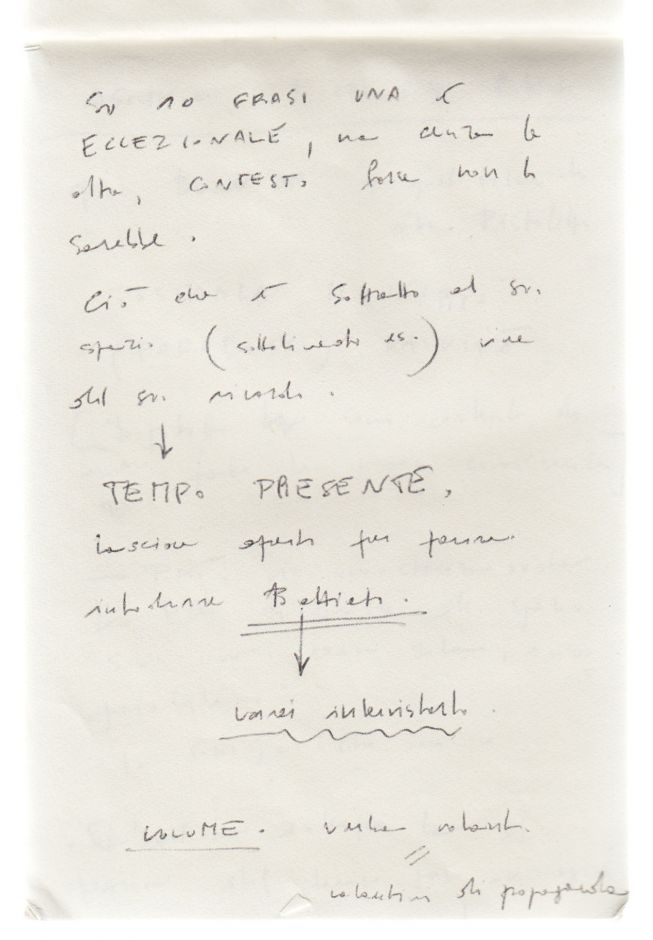 Su 10 FRASI UNA È
ECCEZIONALE, ma senza le
altre, CONTESTO forse non lo
sarebbe.
Ciò che è sottratto al suo
spazio (sottolineato es.) vive
del suo ricordo.
TEMPO PRESENTE,
lasciare aperto per
introdurre Battiato.
vorrei intervistarlo.
VOLUME. verba volant.
volantini di propaganda